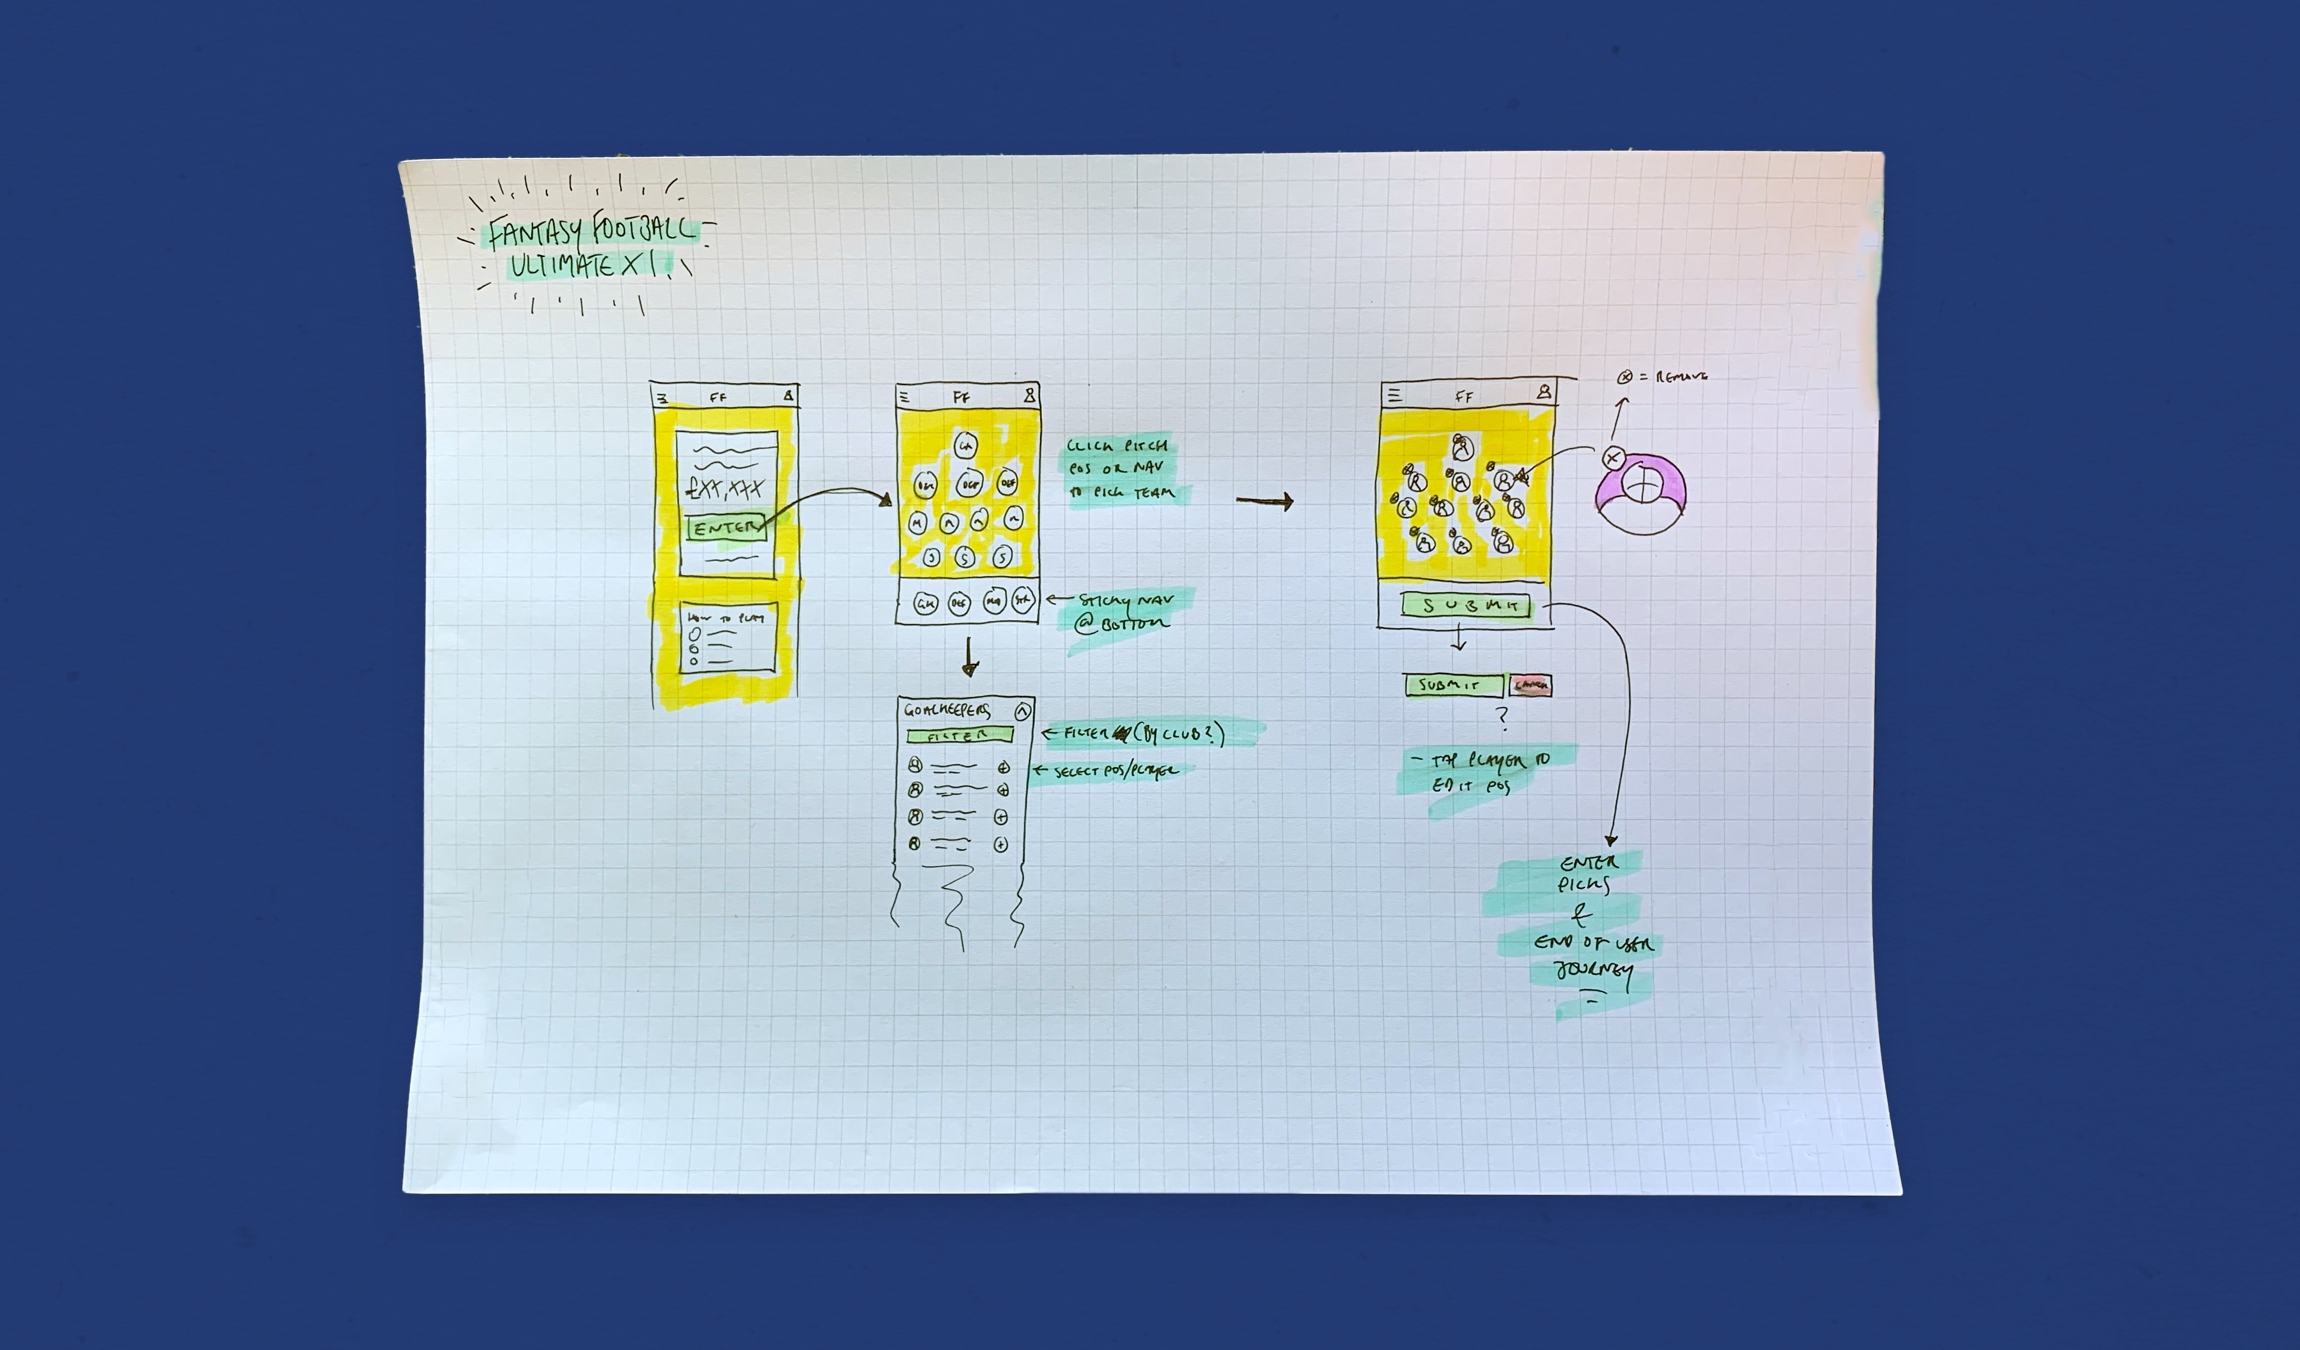 FANTASY FOOTBALL
ULTIMATE XI
FF
£XX,XXX
ENTER
HOW TO PLAY
FF
GK
DEF DEF DEF
M M M M
S S S
GK DEF MID STR
CLICK PITCH
POS OR NAV
TO PICK TEAM
← STICKY NAV
@ BOTTOM
GOALKEEPERS
FILTER
← FILTER (BY CLUB?)
← SELECT POS/PLAYER
FF
SUBMIT
X = REMOVE
X
SUBMIT CANCEL
?
- TAP PLAYER TO
EDIT POS
ENTER
PICKS
&
END OF USER
JOURNEY